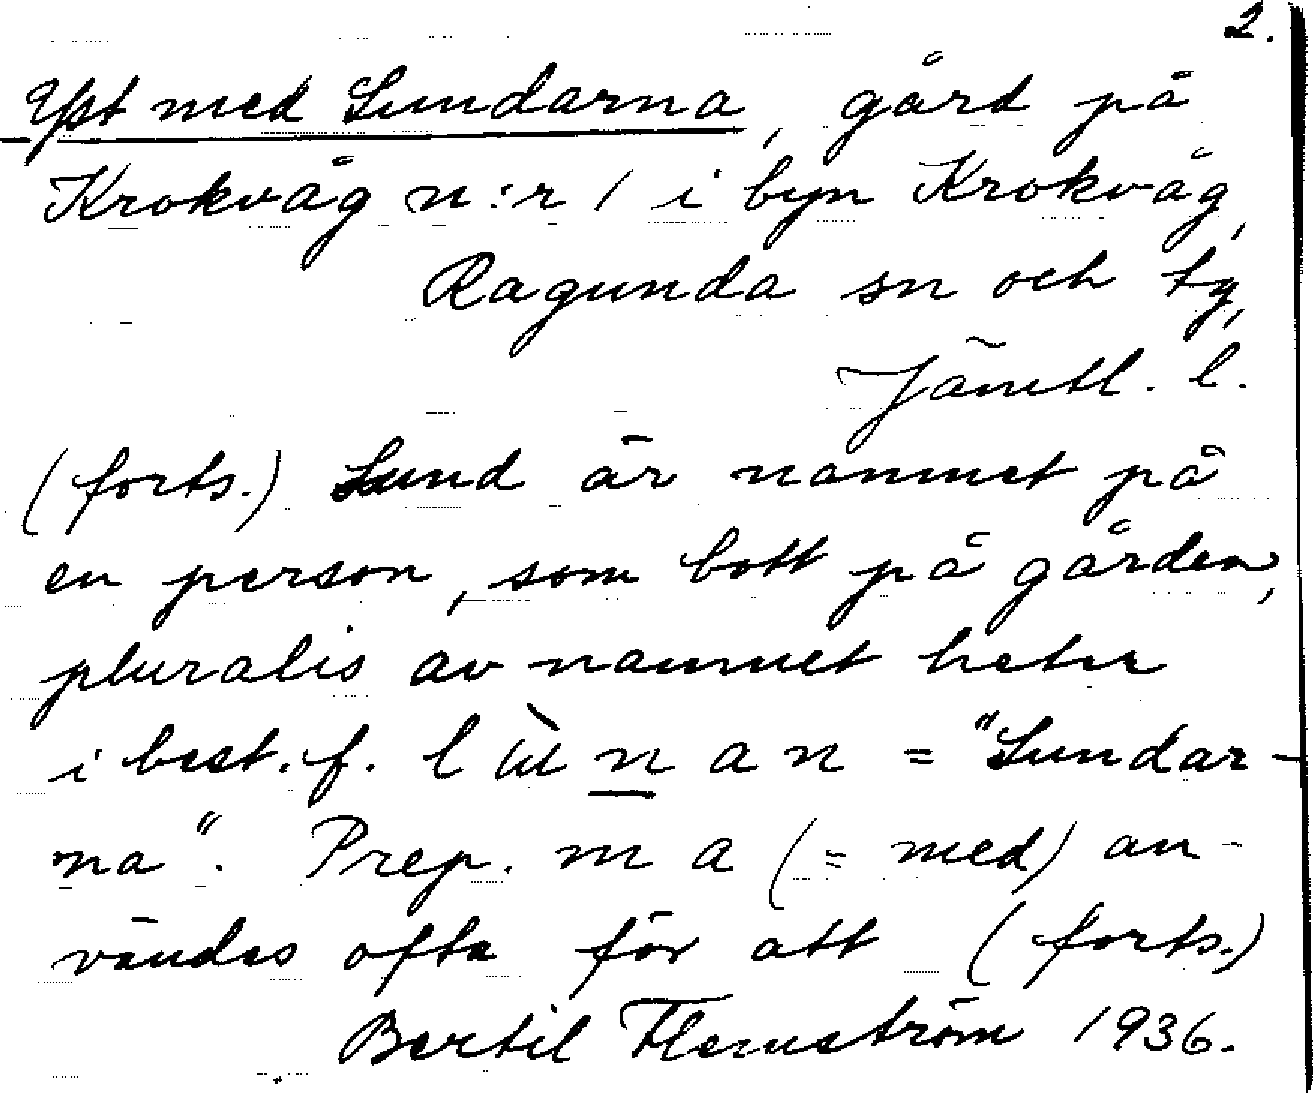 2.
Yst med Lundarna, gård på
Krokvåg n:r 1 i byn Krokvåg,
Ragunda sn och tg,
Jämtl. l.
(forts.) Lund är namnet på
en person, som bott på gården,
pluralis av namnet heter
i best. f. l ù n a n = "Lundar-
na". Prep. m a (= med) an-
vändes ofta för att (forts.)
Bertil Flemström 1936.